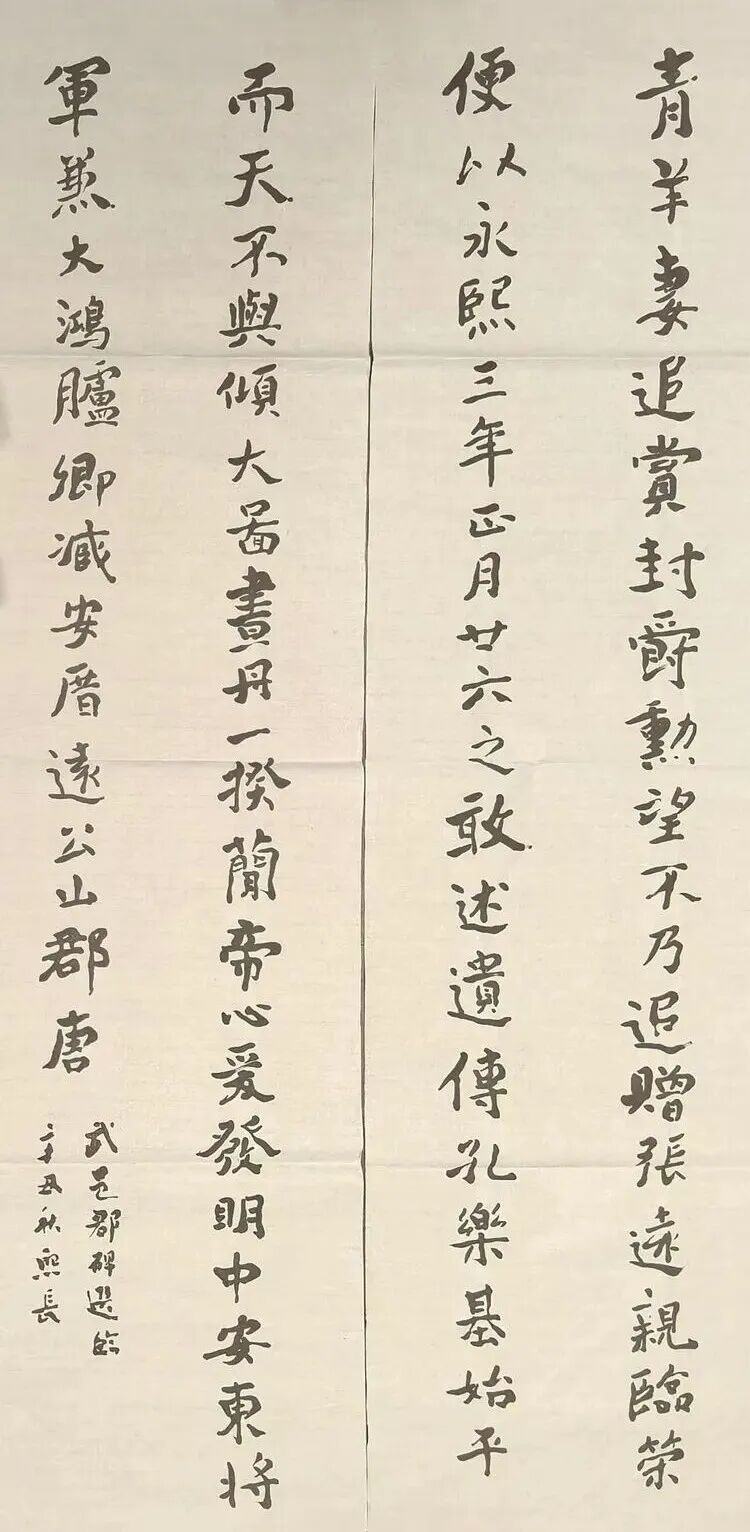 青羊妻追賞封爵勲望不乃追贈張遠親臨榮
便以永熙三年正月廿六之敢述遺傳孔樂基始平
而天不與傾大啚晝丹一揆蕳帝心爰發明中安東將
軍兼大鴻臚卿减安厝遠公山郡唐
武邑郡碑選臨
辛丑秋熙長